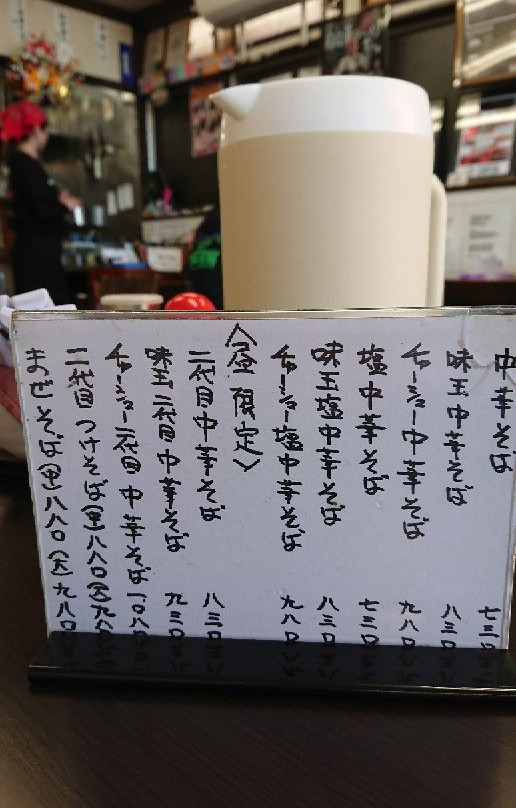 中華そば 七三〇
味玉中華そば 八三〇
チャーシュー中華そば 九八〇
塩中華そば 七三〇
味玉塩中華そば 八三〇
チャーシュー塩中華そば 九八〇
〈昼限定〉
二代目中華そば 八三〇
味玉二代目中華そば 九三〇
チャーシュー二代目中華そば 一〇八〇
二代目つけそば(並)八八〇(大)九八〇
まぜそば(並)八八〇(大)九八〇